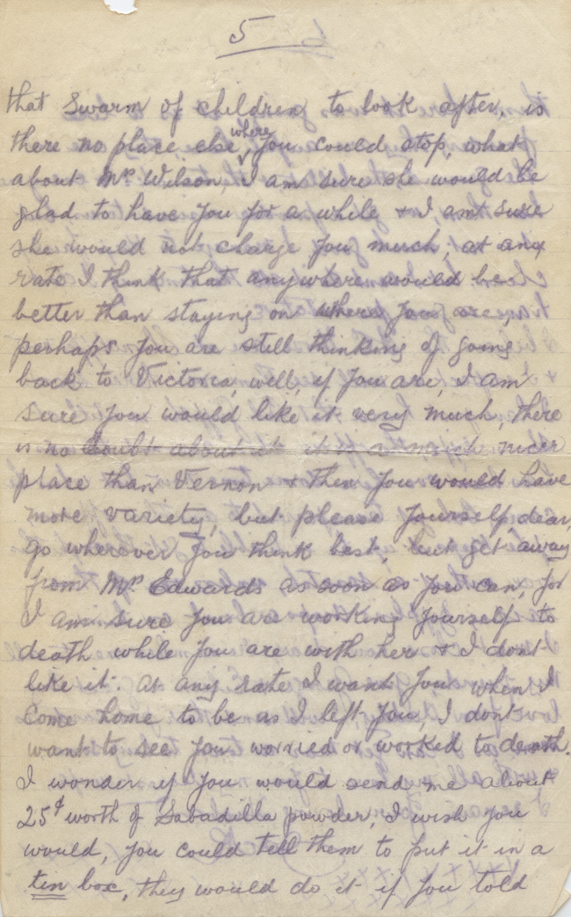 5
that swarm of children to look after, is
there no place else where you could stop, what
about Mrs Wilson, I am sure she would be
glad to have you for a while & I am sure
she would not charge you much, at any
rate I think that anywhere would be
better than staying on where you are,
perhaps you are still thinking of going
back to Victoria, well, if you are, I am
sure you would like it very much, there
is no doubt about it it is a much nicer
place than Vernon & then you would have
more variety, but please yourself dear,
go wherever you think best, but get away
from Mrs Edwards as soon as you can, for
I am sure you are working yourself to
death while you are with her & I dont
like it. At any rate I want you when I
come home to be as I left you, I dont
want to see you worried or worked to death.
I wonder if you would send me about
25¢ worth of Sabadilla powder, I wish you
would, you could tell them to put it in a
tin box, they would do it if you told